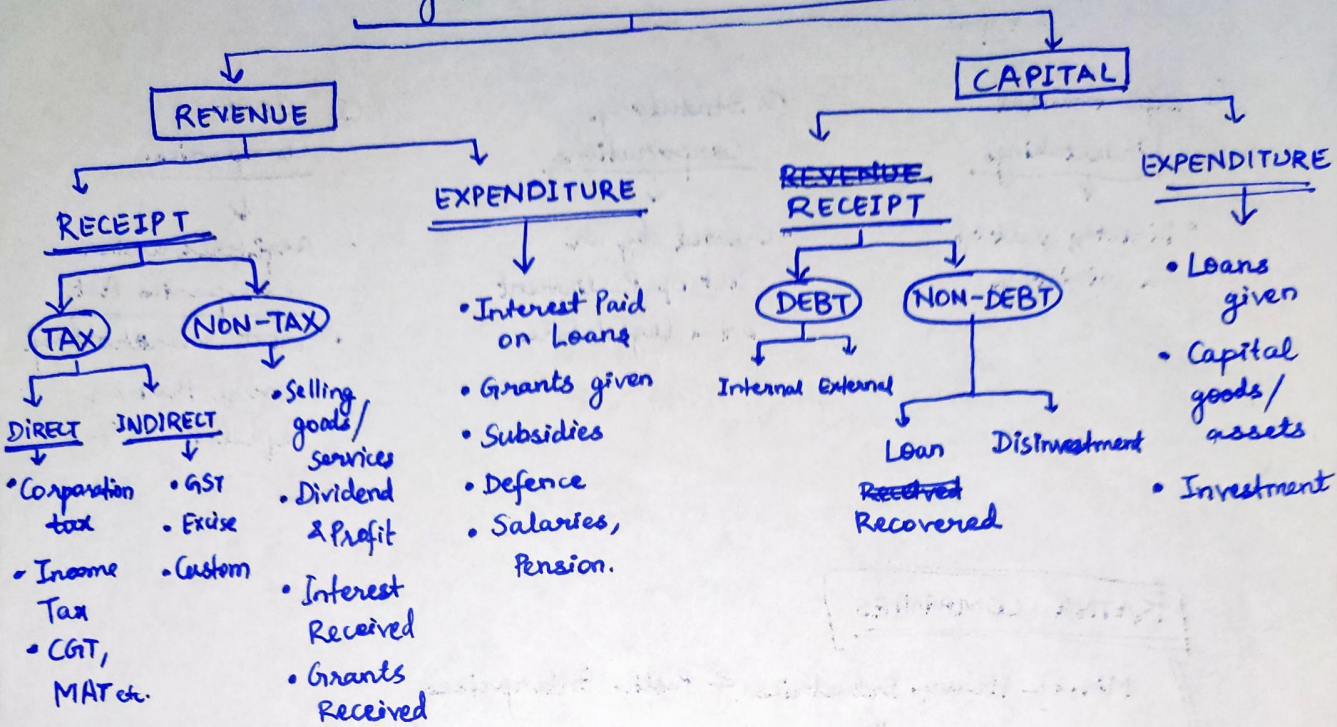 REVENUE
RECEIPT
TAX
NON-TAX
DIRECT
• Corporation
tax
• Income
Tax
• CGT,
MAT etc.
INDIRECT
• GST
• Excise
• Custom
• Selling
goods/
services
• Dividend
& Profit
• Interest
Received
• Grants
Received
EXPENDITURE
• Interest Paid
on Loans
• Grants given
• Subsidies
• Defence
• Salaries,
Pension.
CAPITAL
REVENUE
RECEIPT
DEBT
NON-DEBT
Internal External
Loan
Received
Recovered
Disinvestment
EXPENDITURE
• Loans
given
• Capital
goods/
assets
• Investment